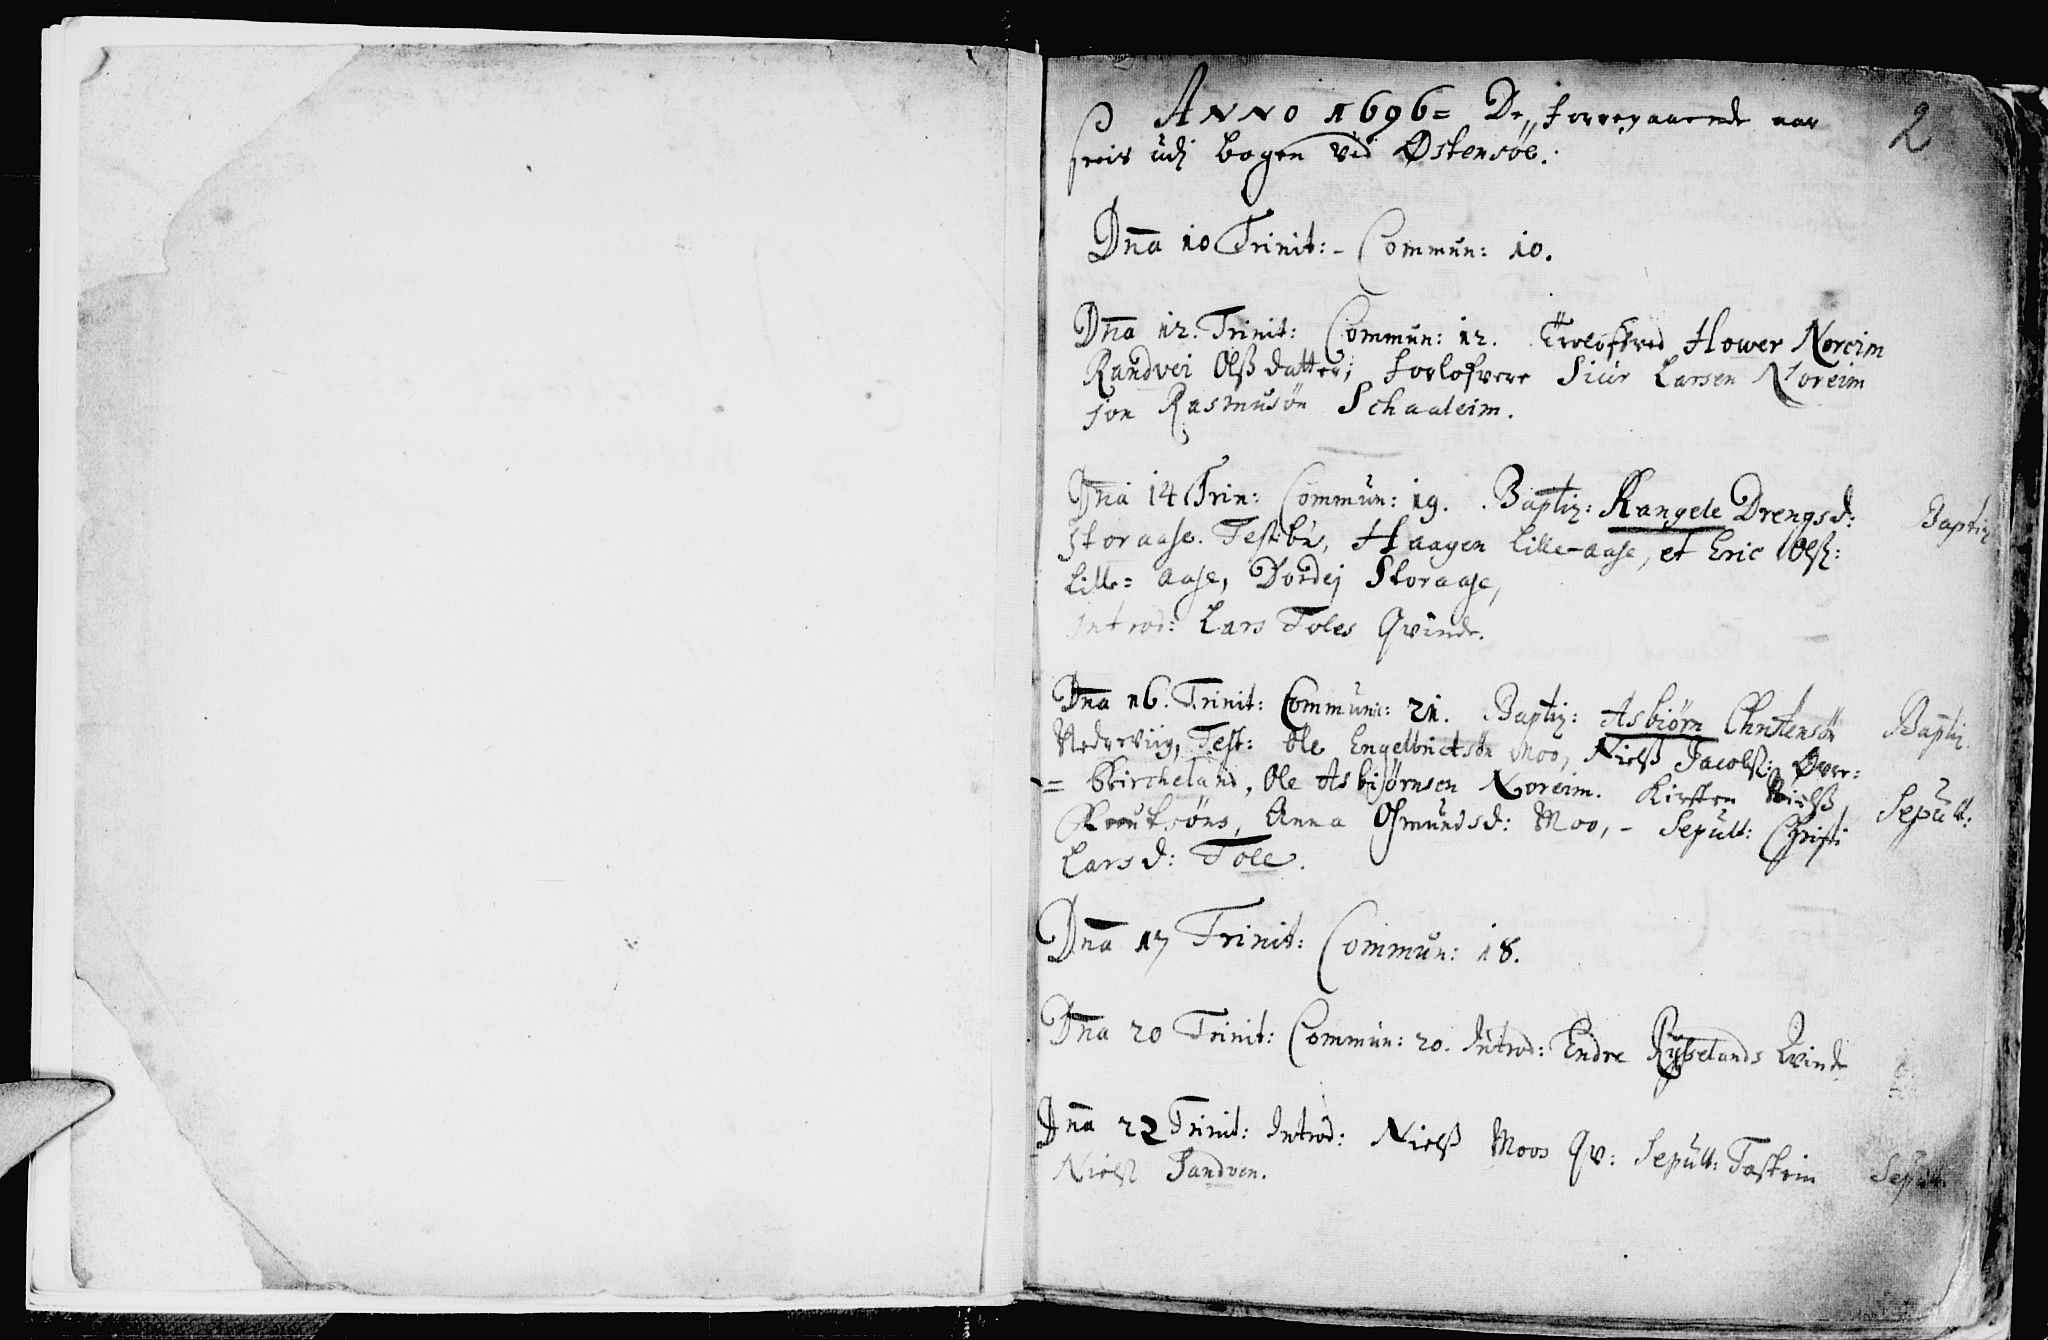 Anno 1696 = De forregaaende aar
2
seeis udj bogen ved Østensöe.
Dn̄a 10 Trinit: - Commun: 10.
Dn̄a 12. Trinit: Commun: 12. Trolofved Hower Noreim
Randvei Olß datter; forlofvere Siur Larsen Noreim
Jon Rasmusön Schaaleim.
Dn̄a 14 Trin: Commun: 19. Baptiz: Rangele Drengsd:
Baptiz
Storaase. Testib, Haagen Lille-aase, et Eric Olß:
Lille= aase, Dordej Storaase,
Introd: Lars Toles Qvinde.
Dn̄a 16. Trinit: Commun: 21. Baptiz: Asbiørn Christensön
Baptiz
Nedreviig, Test: Ole Engelbrictsön Moo, Nielß Jacobß: Øvre=
= Bircheland, Ole Asbiørnsen Noreim. Kirsten Nielß
Knutsöns, Anna Osmundsd: Moo, - Sepult: Christi
Sepult:
Larsd: Tole.
Dn̄a 17 Trinit: Commun: 18.
Dn̄a 20 Trinit: Commun: 20. Introd: Endre Rykelands Qvinde
Dn̄a 22 Trinit: Introd: Nielß Moos Qv: Sepult: Tostein
Sepult
Nielß Sandven.